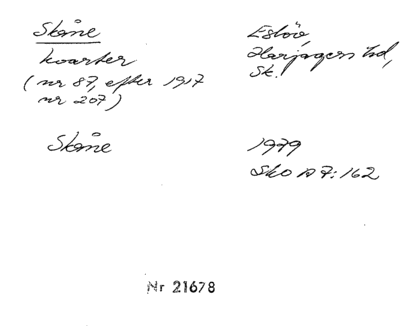 Skåne
kvarter
(nr 87, efter 1917
nr 207)
Eslöv,
Harjagers hd,
Sk.
Skåne
1979
Sko A 7:162
Nr 21678